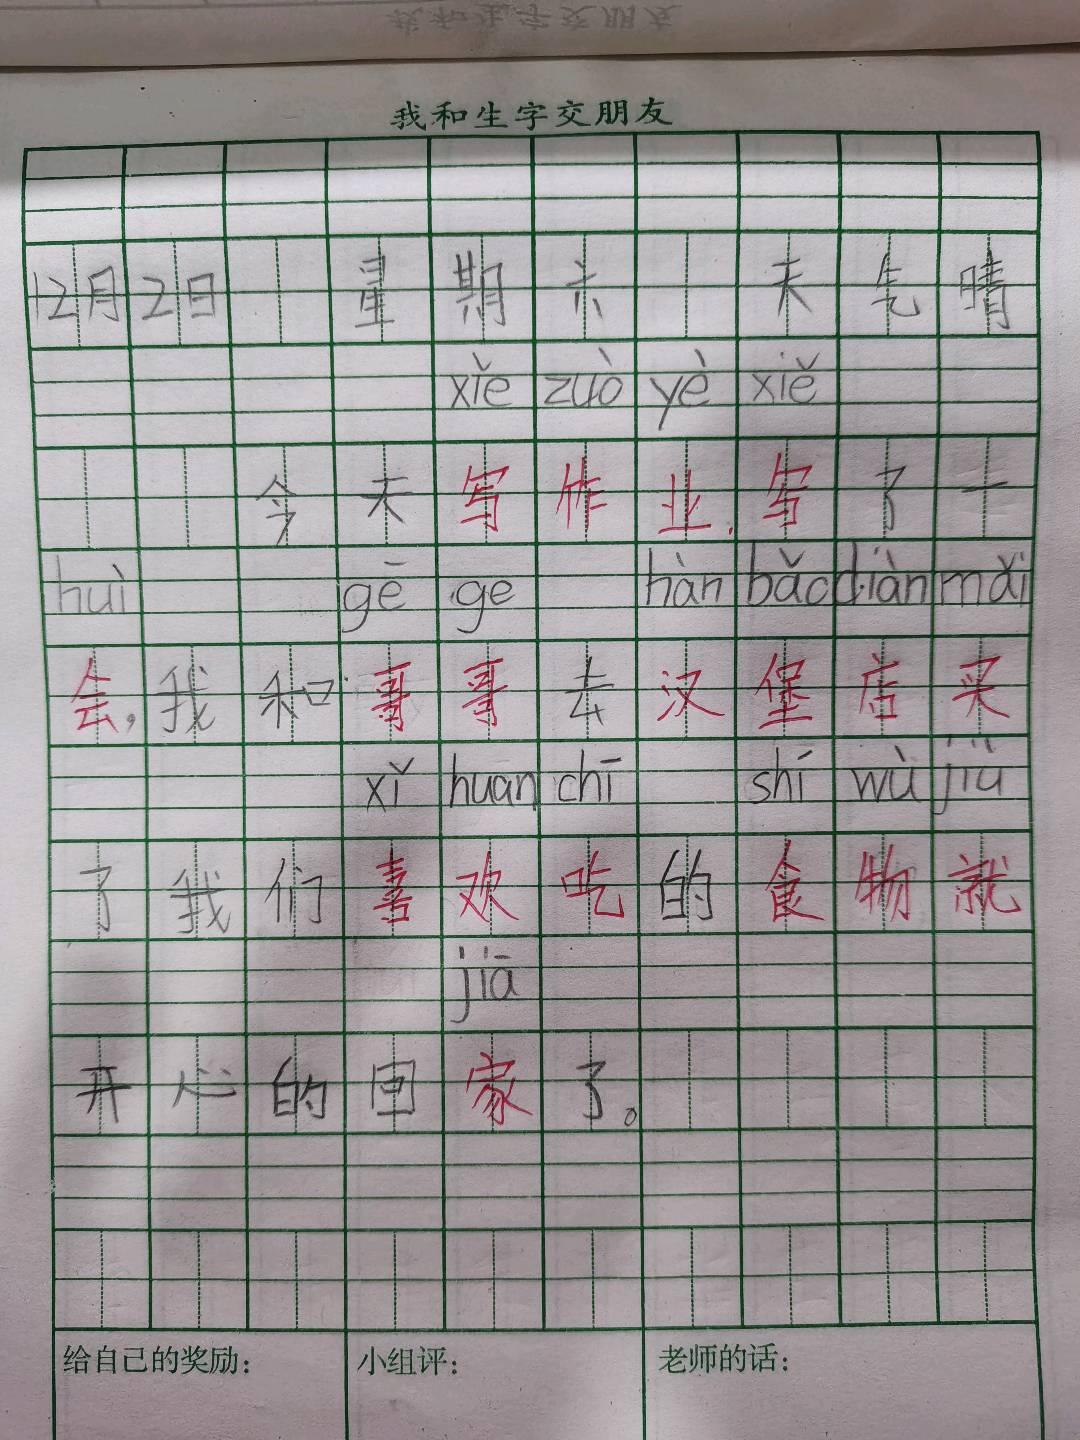 我和生字交朋友
12月2日 星期六 天气晴
xiě zuò yè xiě
今天写作业,写了一
huì gē ge hàn bǎo diàn mǎi
会,我和哥哥去汉堡店买
xǐ huan chī shí wù jiù
了我们喜欢吃的食物就
jiā
开心的回家了。
给自己的奖励: 小组评: 老师的话: